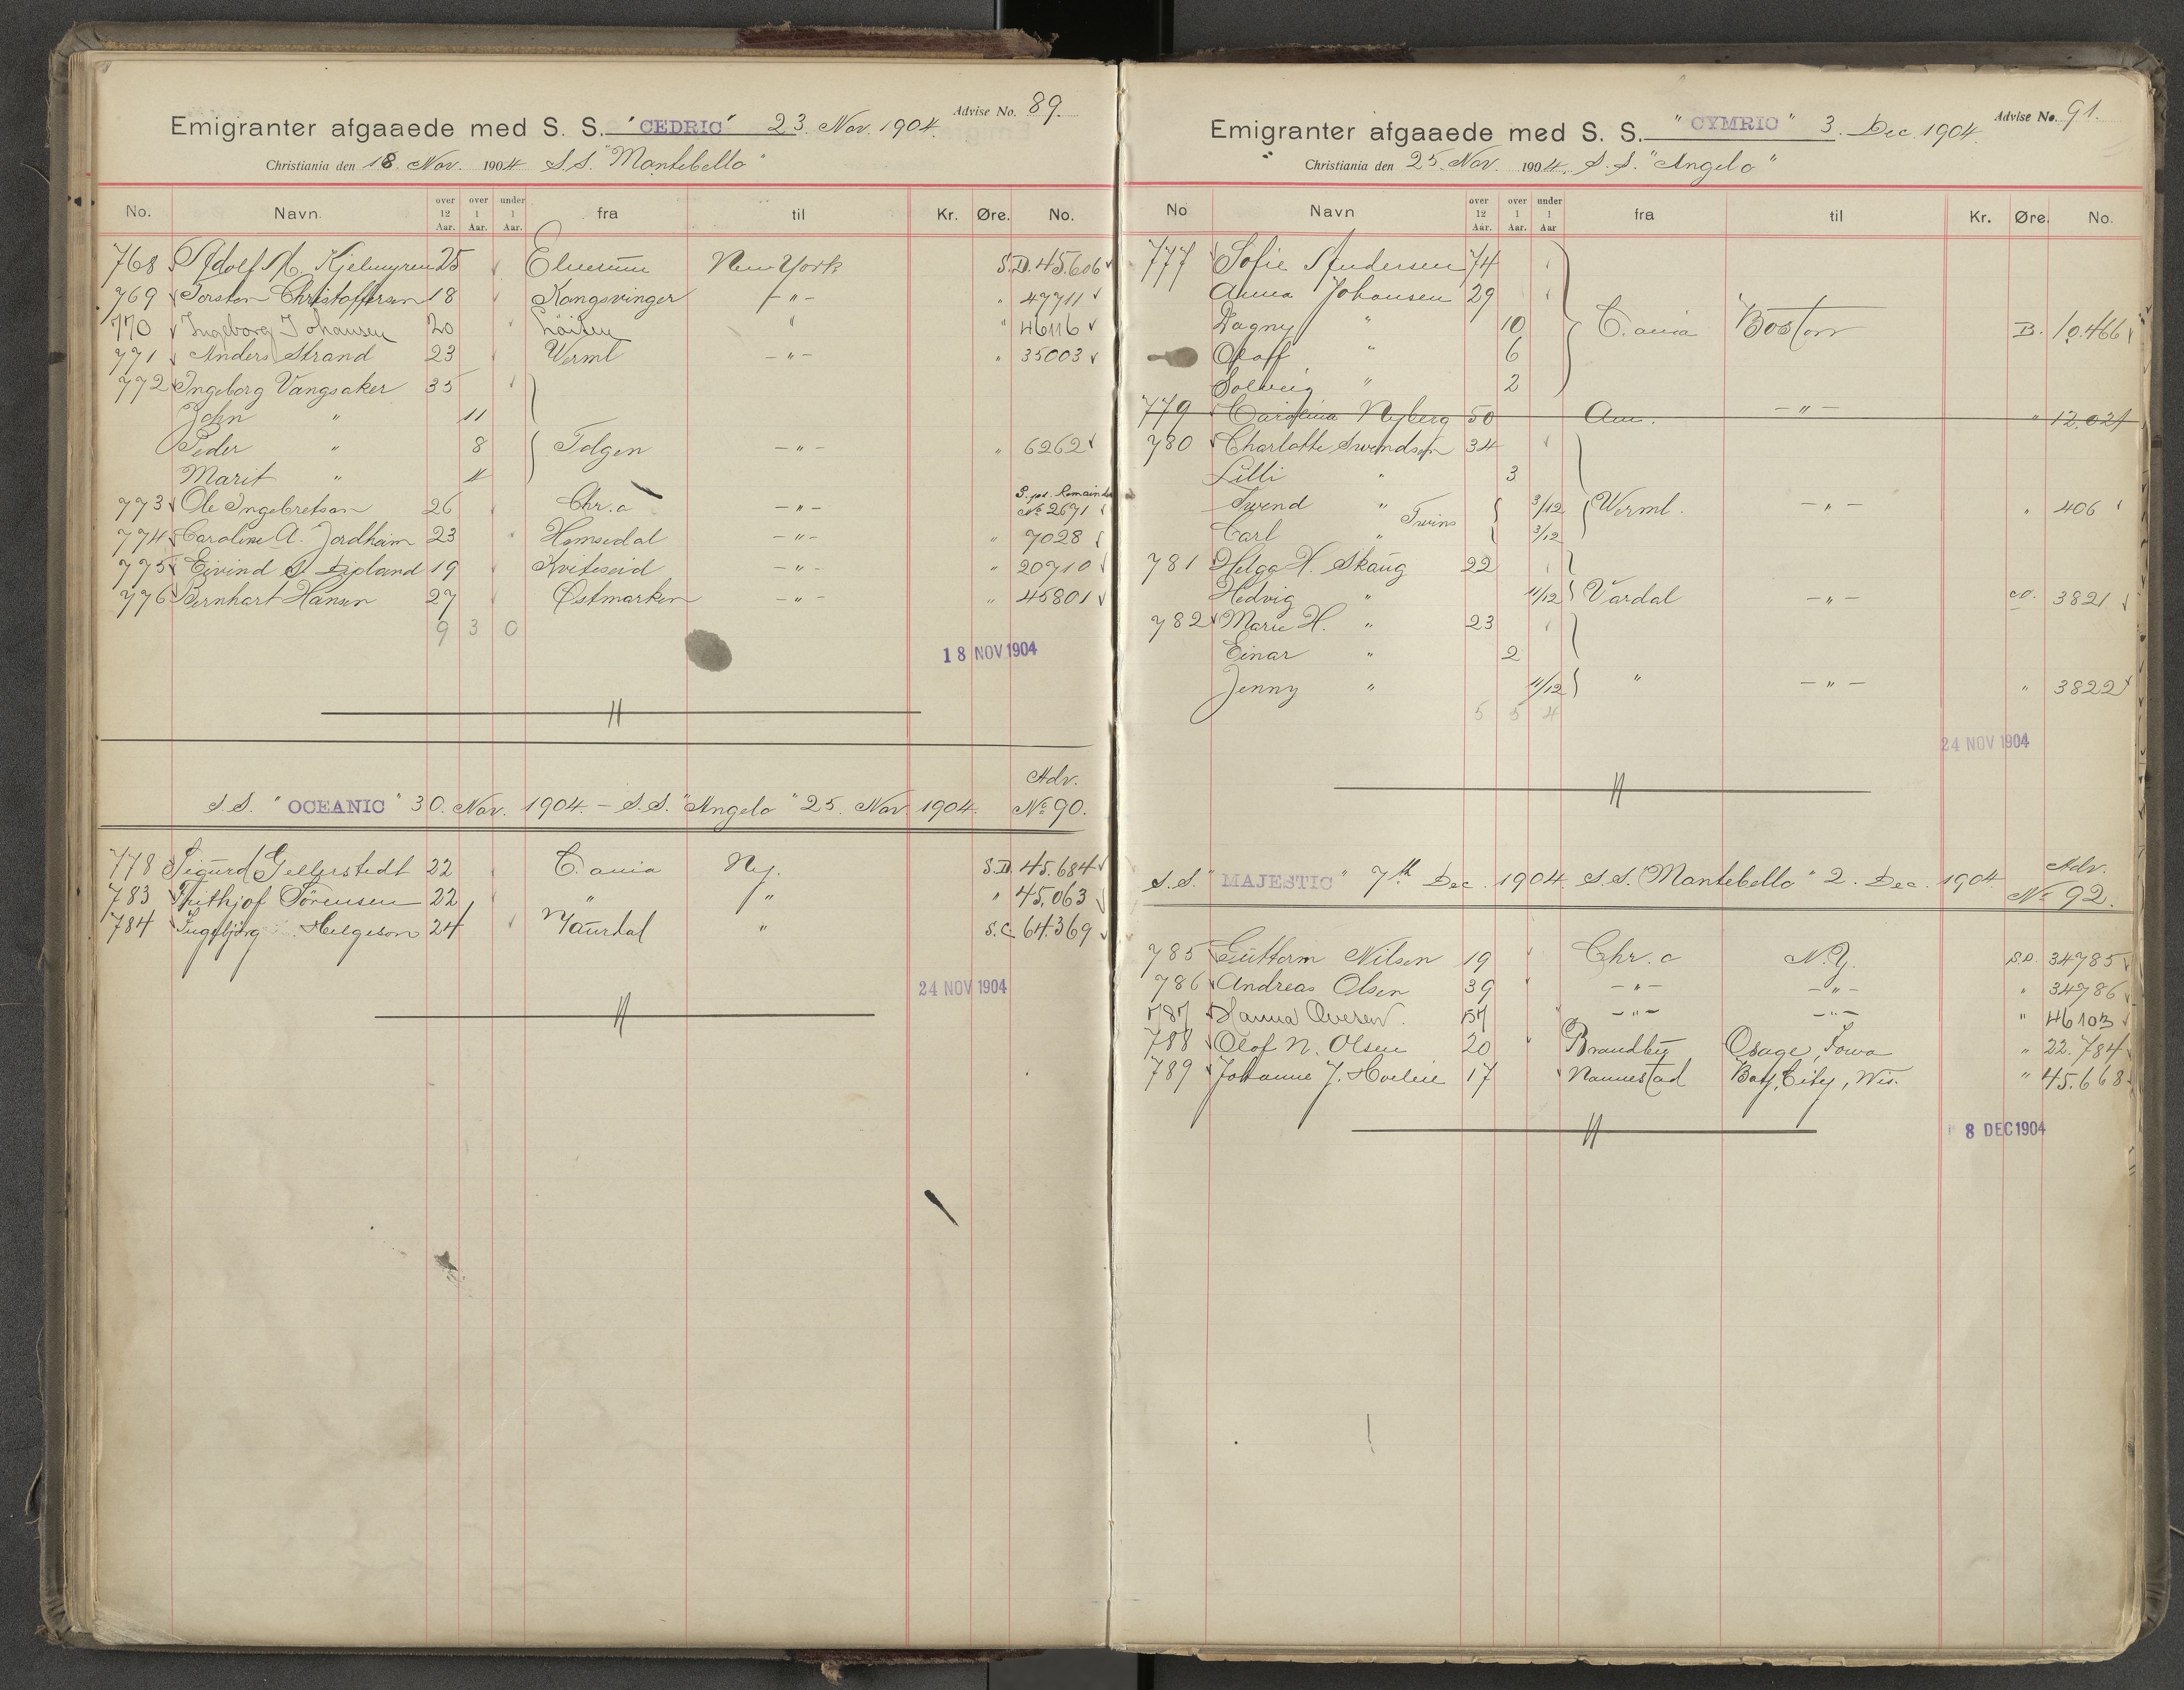 Advise No. 89.
Emigranter afgaaede med S. S. "CEDRIC" 23. Nov. 1904.
Christiania den 18. Nov. 1904 S.S. "Montebello"
No. Navn over 12 Aar. over 1 Aar. under 1 Aar. fra til Kr. Øre. No.
768 Adolf M. Kjelmyren 25 Elverum New York S.D. 45.606
769 Torsten Christoffersen 18 Kongsvinger - " - " 47711
770 Ingeborg Johansen 20 Löiten " " 46116
771 Anders Strand 23 Werml - " - " 35003
772 Ingeborg Vangsaker 35
John " 11
Peder " 8 Tolgen - " - " 6262
Marit " 4
773 Ole Ingebretsen 26 Chr.a - " - No 2671
774 Caroline A. Jordheim 23 Hemsedal - " - " 7028
775 Eivind S. Dipland 19 Kviteseid - " - " 20710
776 Bernhart Hansen 27 Østmarken - " - " 45801
9 3 0
18 NOV 1904
Adv.
S.S. "OCEANIC" 30. Nov. 1904 - S.S. "Angelo" 25. Nov. 1904. No 90.
778 Sigurd Gellerstedt 22 C.ania Ny. S.D. 45.684
783 Frithjof Sörensen 22 " " " 45.063
784 Ingebjörg Helgeson 24 Naurdal " S.C. 64.369
24 NOV 1904
Advise No. 91.
Emigranter afgaaede med S. S. "CYMRIC" 3. Dec. 1904
Christiania den 25. Nov. 1904. S.S. "Angelo"
No Navn over 12 Aar. over 1 Aar. under 1 Aar fra til Kr. Øre. No.
777 Sofie Andersen 74
Anna Johansen 29
Dagny " 10 C.ania Boston B. 10.466
Olaff " 6
Solveig " 2
779 Carolina Nyberg 50 Am. - " - " 12.021
780 Charlotte Swendsen 34
Lilli " 3
Swend " Twins 3/12 Werml. - " - " 406
Carl " 3/12
781 Helga H. Skaug 22
Hedvig " 11/12 Vardal - " - co. 3821
782 Marie H. " 23
Einar " 2
Jenny " 11/12 " - " - " 3822
5 5 4
24 NOV 1904
Adv.
S.S. "MAJESTIC" 7th Dec. 1904 S.S. "Montebello" 2. Dec. 1904 No 92.
785 Guttorm Nilsen 19 Chr.a N.Y. S.D. 34785
786 Andreas Olsen 39 - " - - " - " 34786
787 Hanna Oversen. 57 - " - - " - " 46103
788 Olof N. Olsen 20 Brandbu Osage, Iowa " 22.784
789 Johanne J. Hvelen 17 Nannestad Bay City, Wis. " 45.668
8 DEC 1904